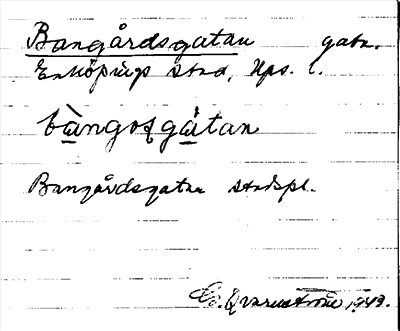 Bangårdsgatan gatn.
Enköpings stad, Ups. l.
bàngosgàtan
Bangårdsgatan stadspl.
Qvarnström 1943.